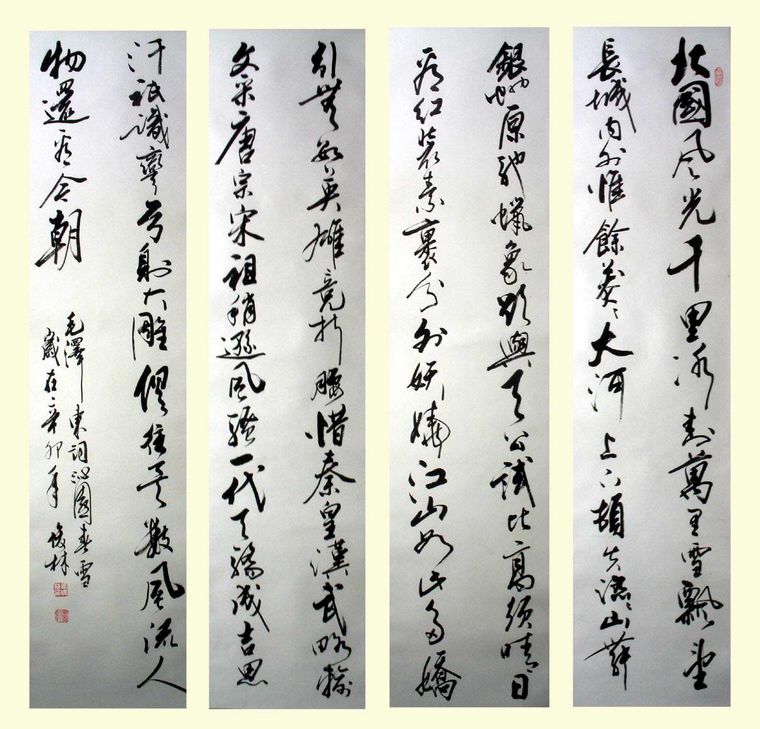 北國风光千里冰封萬里雪飄望
長城内外惟餘莽々大河上下頓失滔々山舞
銀蛇原馳蠟象欲與天公試比高須晴日
看紅裝素裹分外妖嬈江山如此多嬌
引無數英雄竞折腰惜秦皇漢武略輸
文采唐宗宋祖稍遜風騷一代天驕成吉思
汗祇識彎弓射大雕俱往矣數風流人
物還看今朝
毛澤東詞沁園春雪
歲在辛卯年 俊林